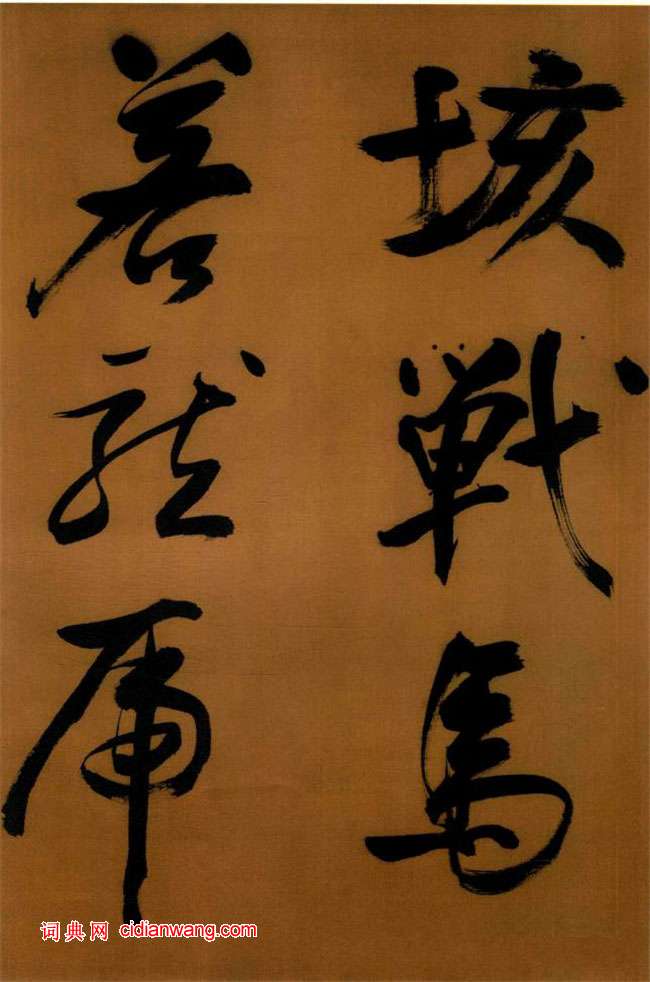 垓戰馬
若龍虎
词典网 cidianwang.com